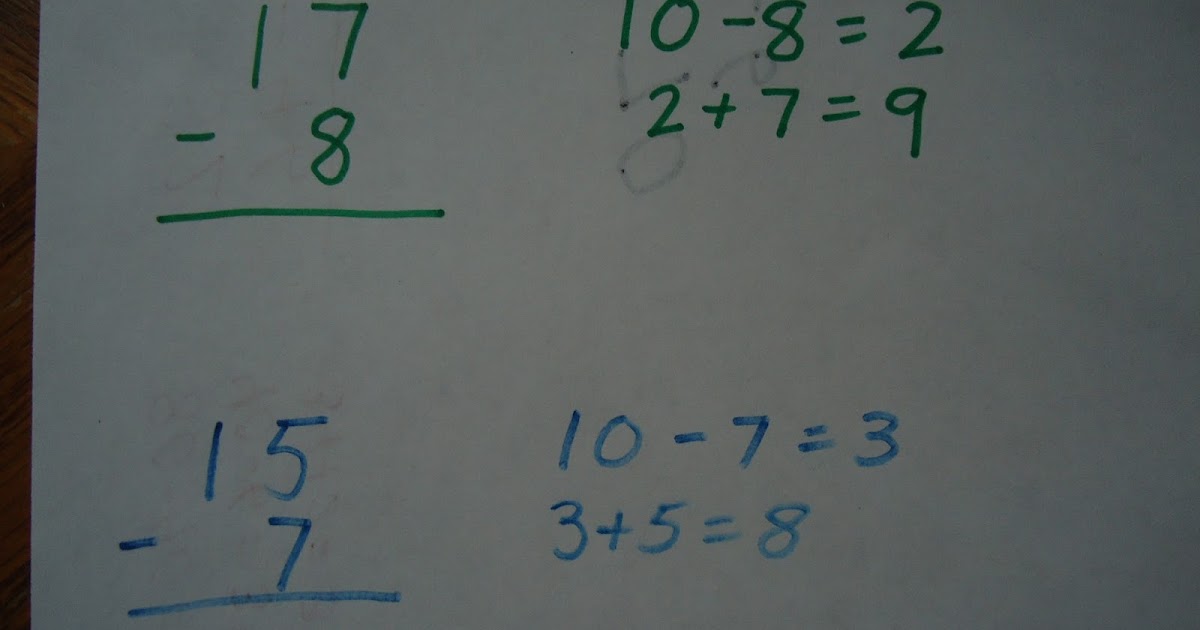 17
- 8
10 - 8 = 2
2 + 7 = 9
15
- 7
10 - 7 = 3
3 + 5 = 8